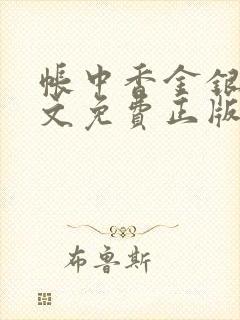 帐中香金银
文免费正版
布鲁斯